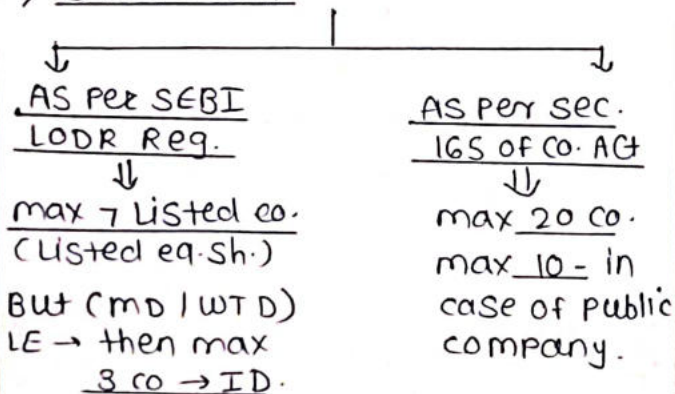 AS Per SEBI
LODR Reg.
max 7 Listed co.
(Listed eq.sh.)
But (MD / WTD)
LE → then max
3 co → ID.
AS per sec.
165 of co. Act
max 20 co.
max 10 - in
case of public
company.